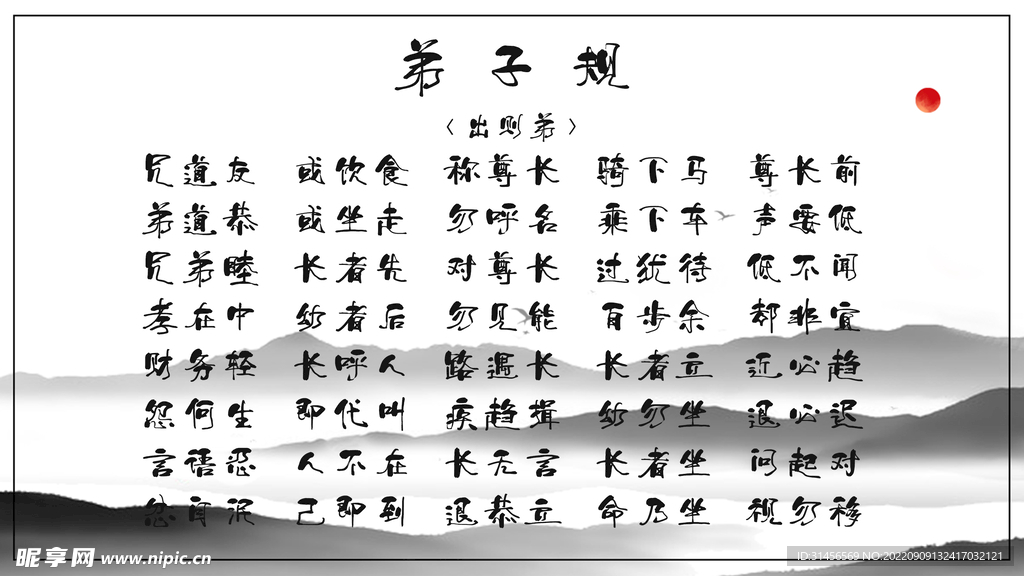 弟子规
〈出则弟〉
兄道友
弟道恭
兄弟睦
孝在中
财务轻
怨何生
言语忍
忿自泯
或饮食
或坐走
长者先
幼者后
长呼人
即代叫
人不在
己即到
称尊长
勿呼名
对尊长
勿见能
路遇长
疾趋揖
长无言
退恭立
骑下马
乘下车
过犹待
百步余
长者立
幼勿坐
长者坐
命乃坐
尊长前
声要低
低不闻
却非宜
近必趋
退必迟
问起对
视勿移
昵享网 www.nipic.cn
ID:31456569 NO:20220909132417032121